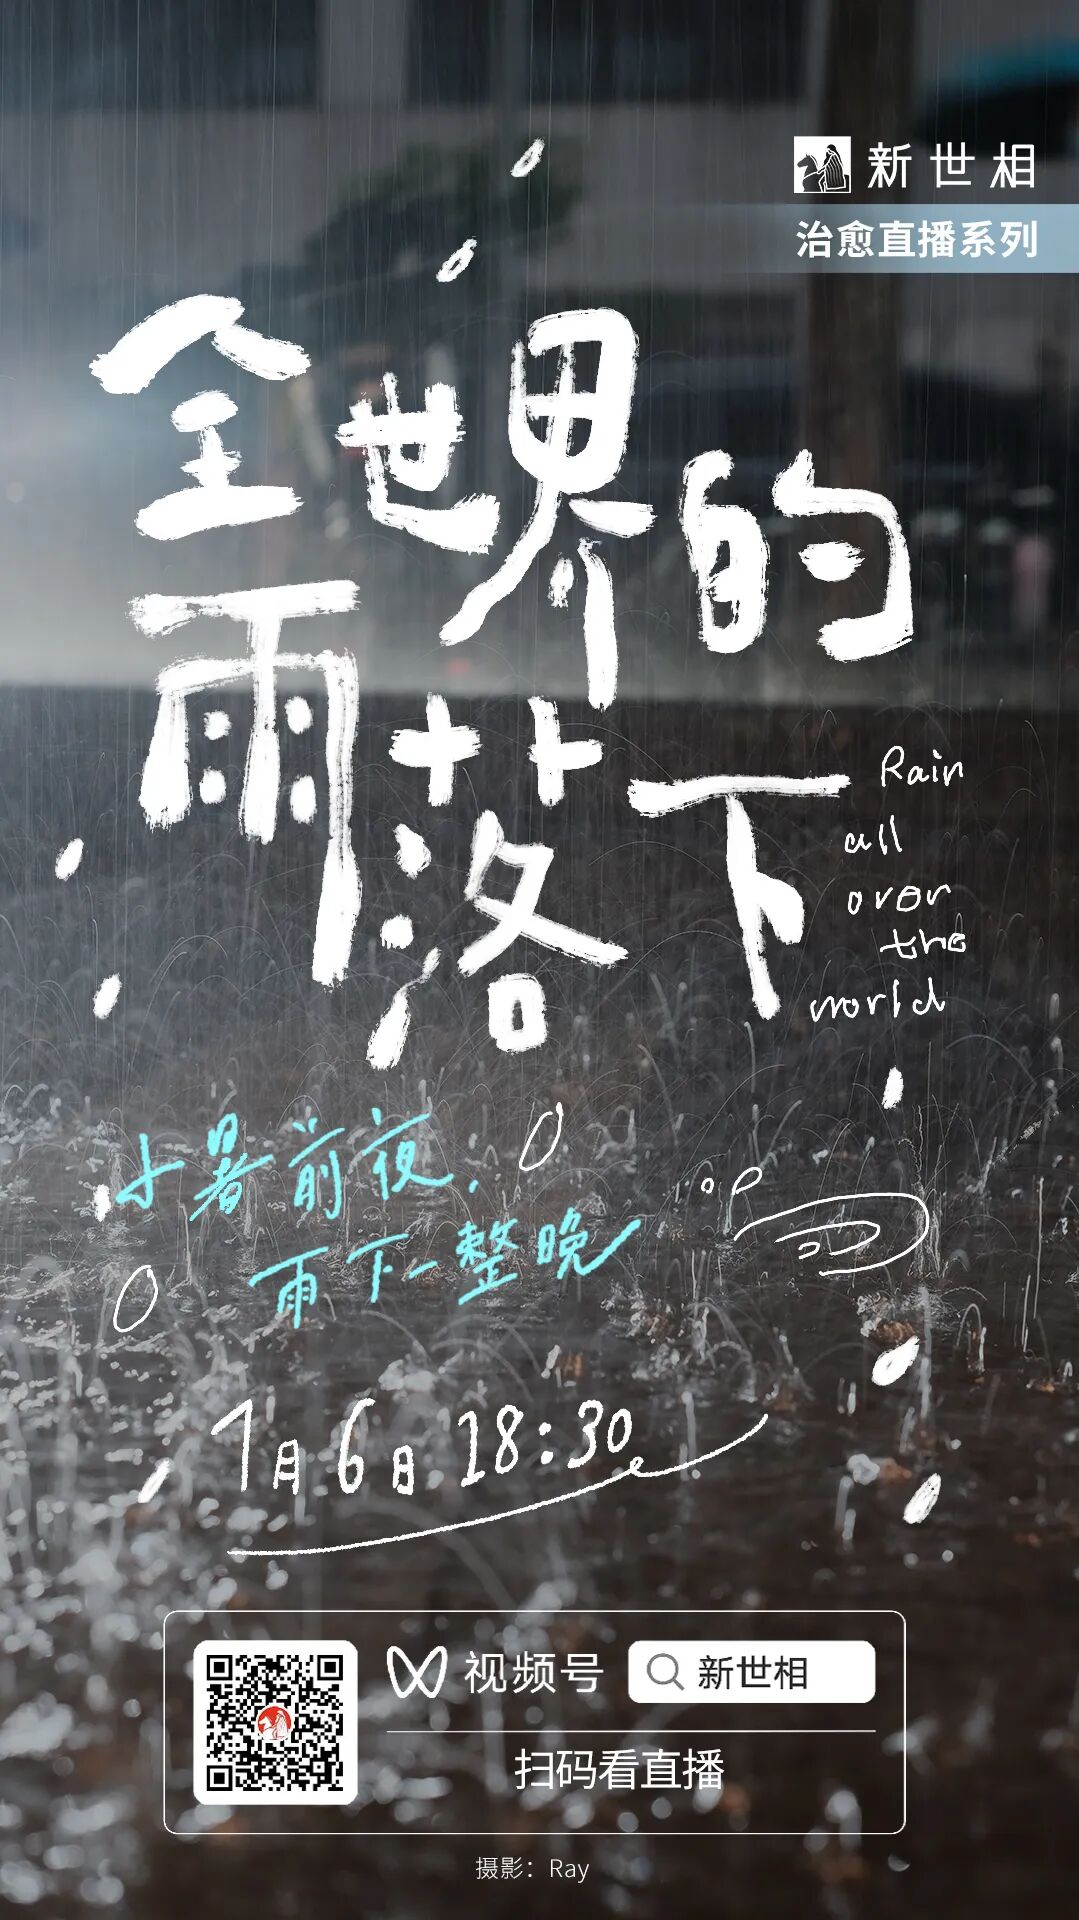 新世相
治愈直播系列
全世界的
雨落下
Rain
all
over
the
world
小暑前夜，
雨下一整晚
7月6日 18:30
视频号
新世相
扫码看直播
摄影：Ray